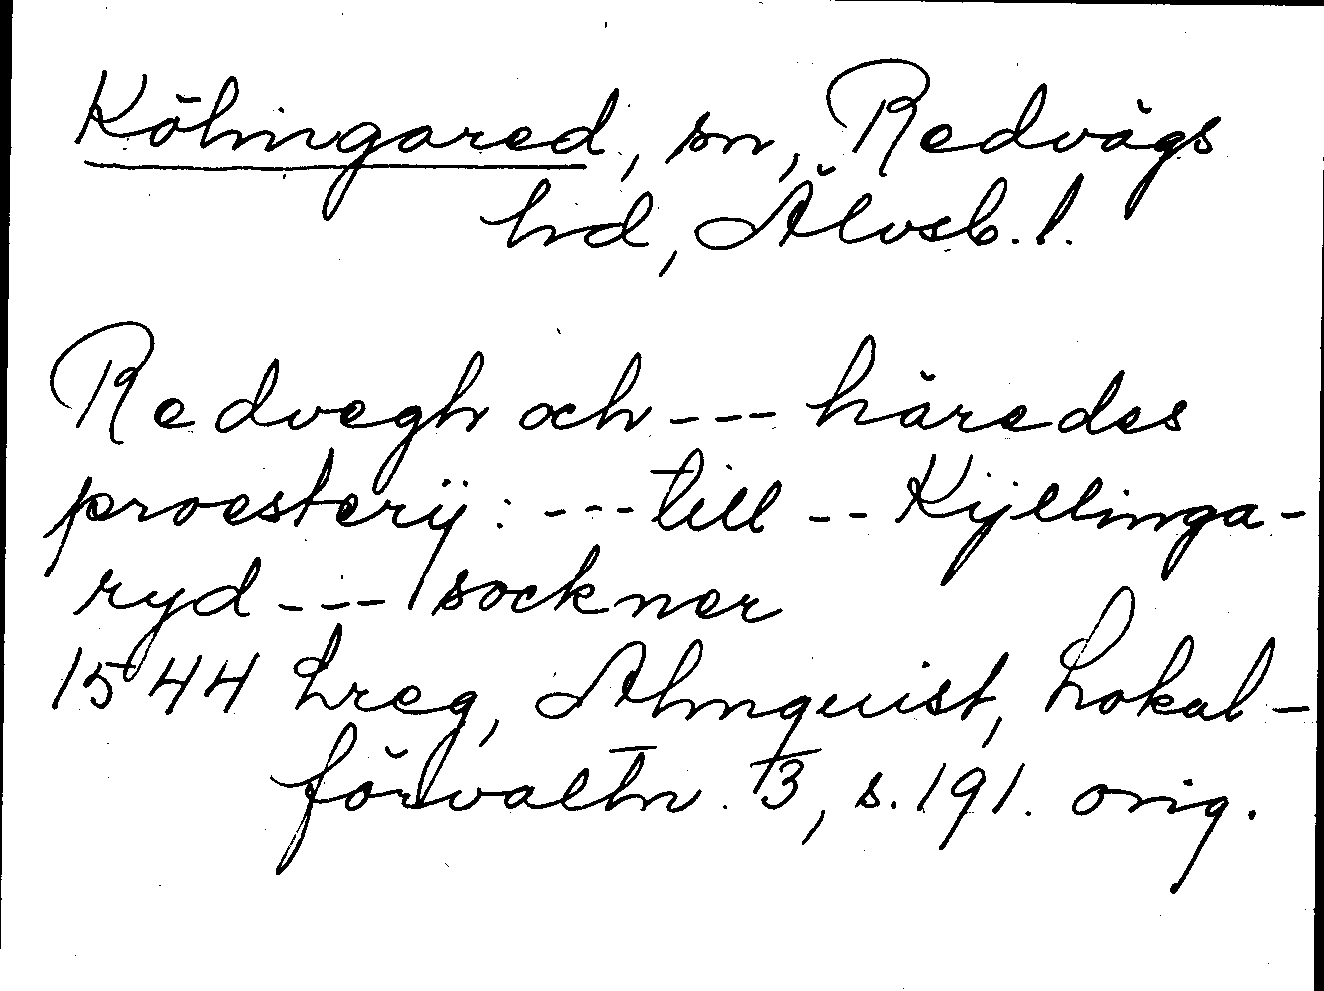 Kölingared, sn, Redvägs
hd, Älvsb. l.
Redvegh och --- häredes
proesterij: --- till -- Kijllinga-
ryd --- sockner
1544 Lreg, Almquist, Lokal-
förvaltn. 3, s. 191. orig.